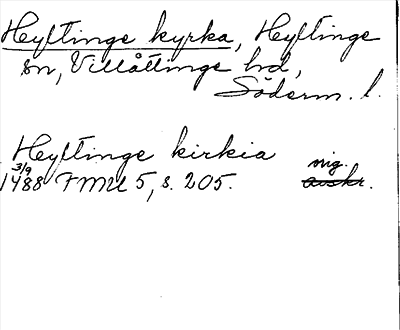 Heyltinge kyrka, Heyltinge
sn, Villåttinge hd,
Söderm. l.
Heyltinge kirkia
orig.
3/9
1488 FMU 5, s. 205. avskr.